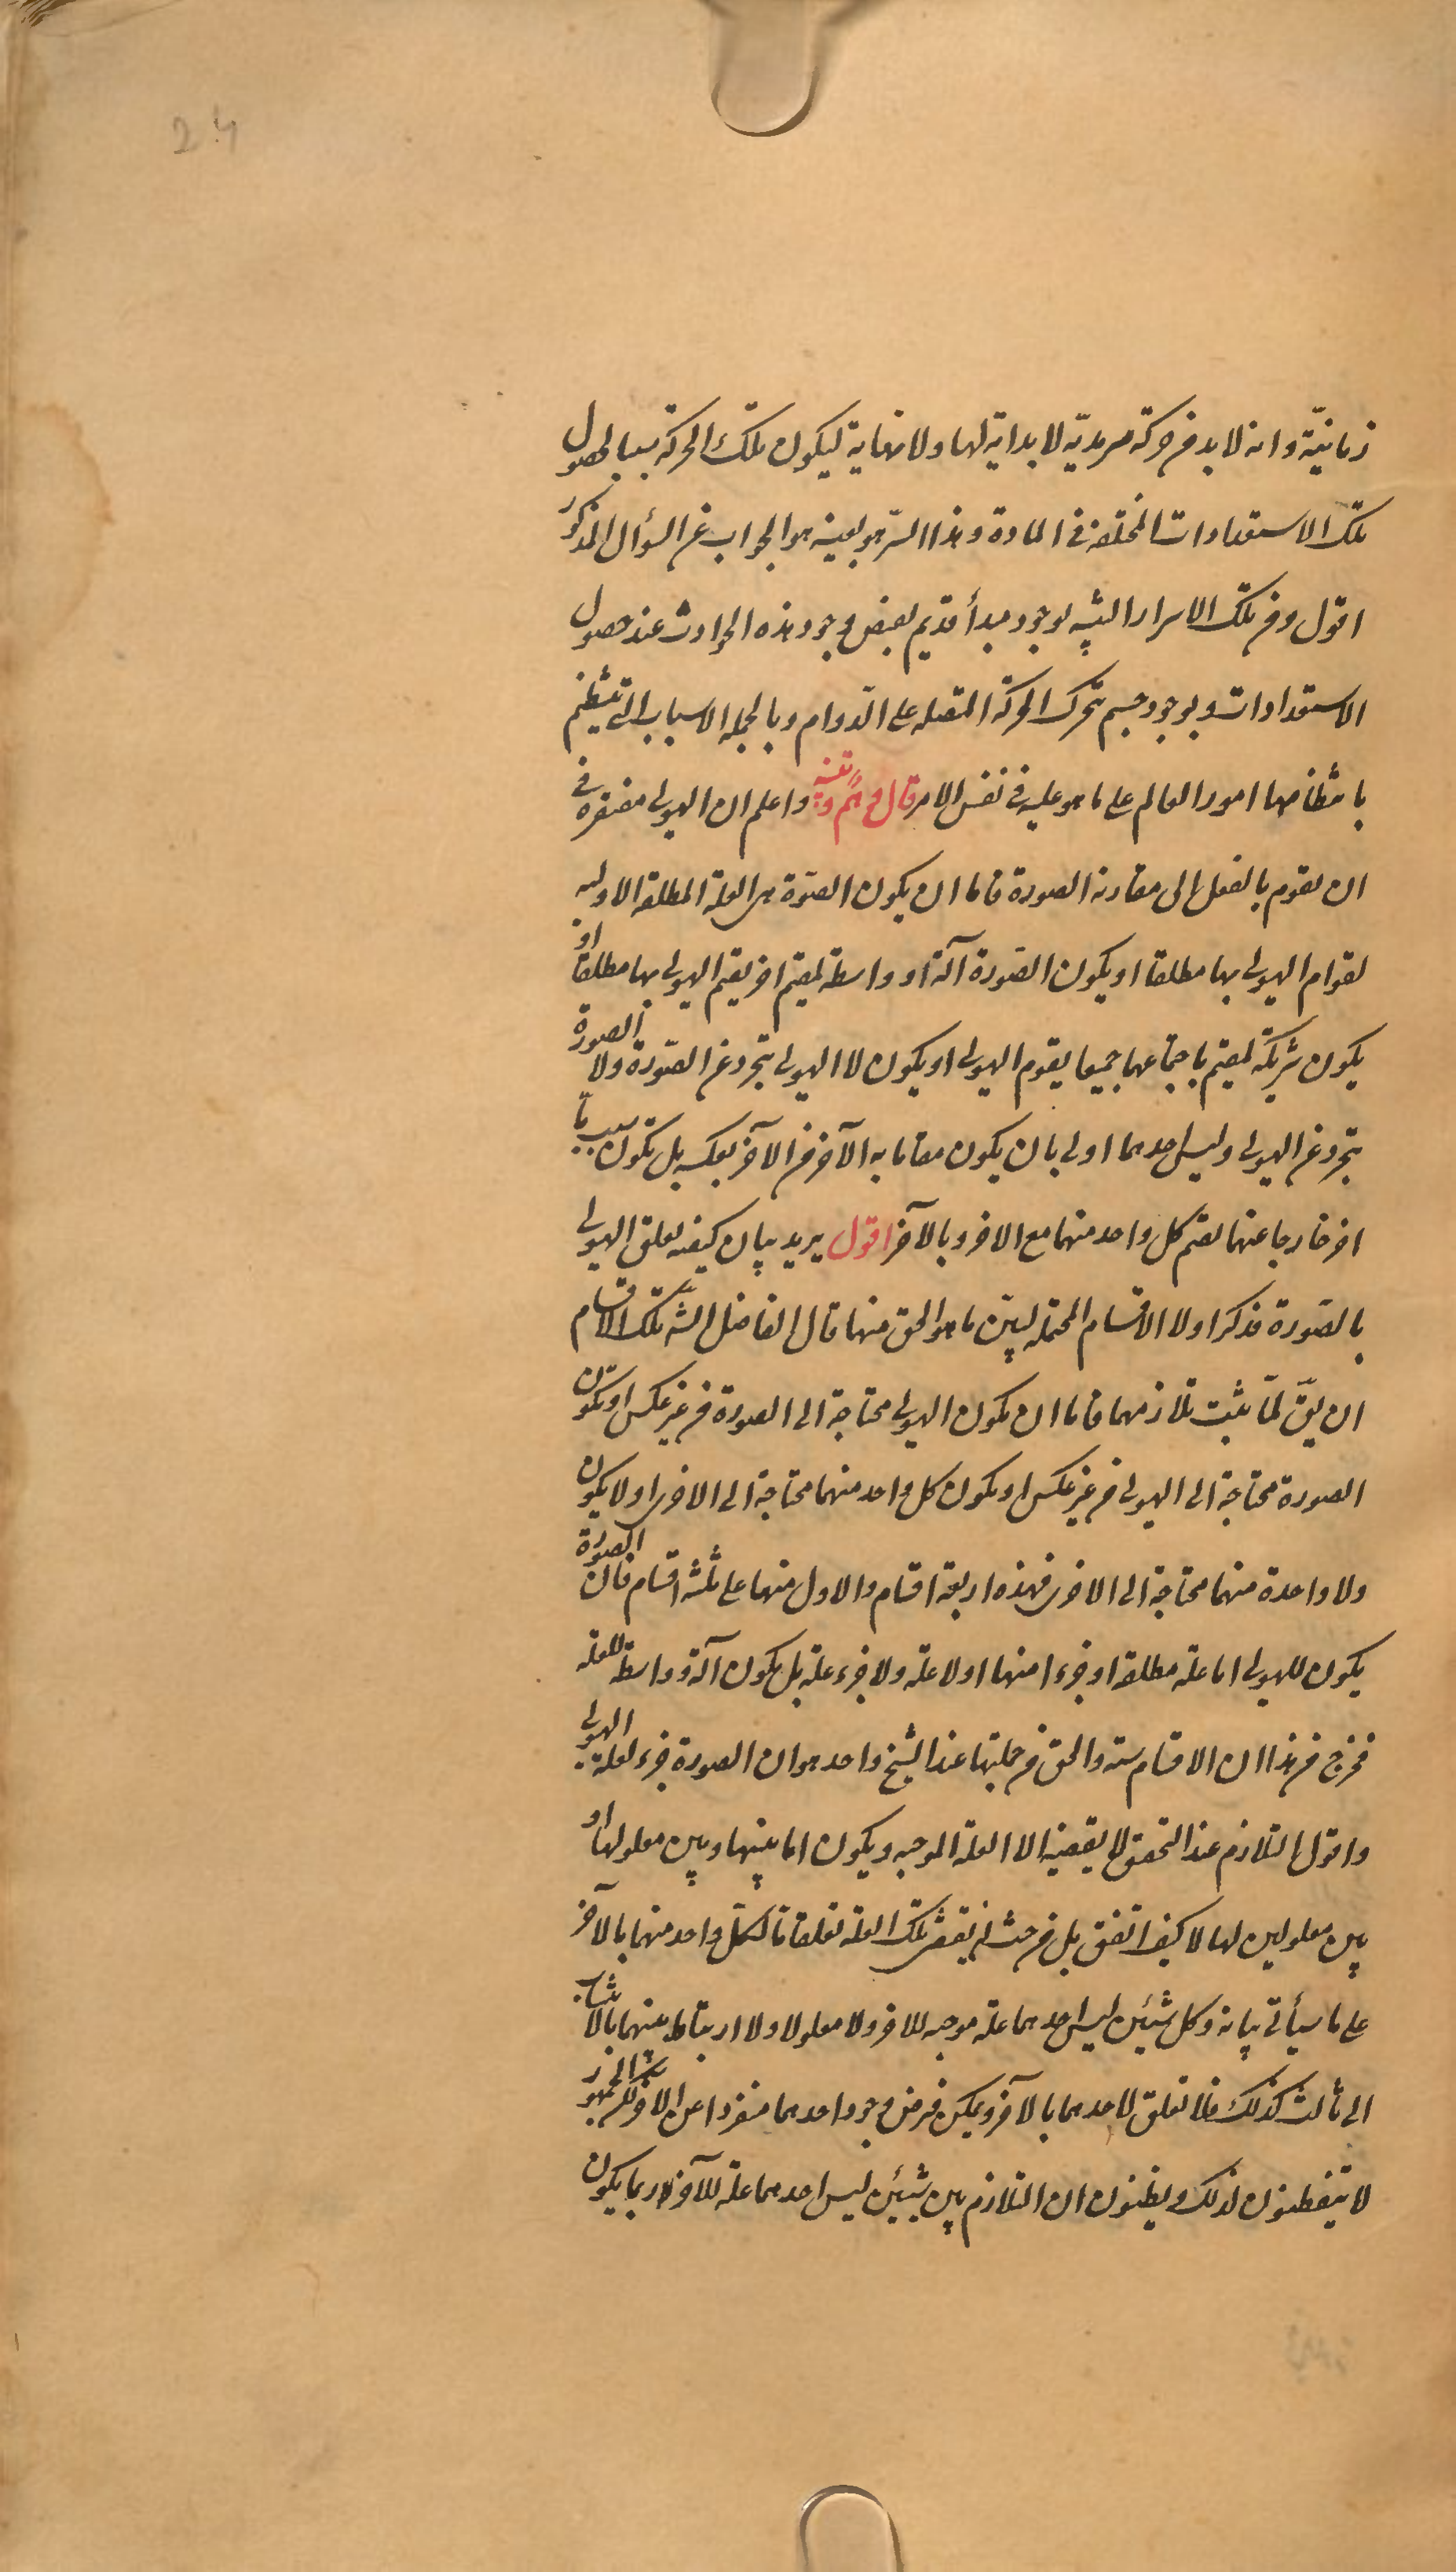 24
زمانيّة وانه لا بد من حركة سرمديّة لا بداية لها ولا نهاية ليكون تلك الحركة سببا لحصول
تلك الاستعدادات المختلفة في المادة وهذا السرّ هو بعينه هو الجواب عن السؤال المذكور
اقول ومن تلك الاسرار التنبيه لوجود مبدأ قديم يفيض وجود هذه الحوادث عند حصول
الاستعدادات وبوجود جسم يتحرك الحركة المتصله على الدوام وبالجمله الاسباب التي ينتظم
بانتظامها امور العالم على ما هو عليه في نفس الامر قال وهمٌ وتنبيه واعلم ان الهيولى مفتقره في
ان تقوم بالفعل الى مقارنة الصورة فاما ان يكون الصّورة هي العلة المطلقة الاوليه
لقوام الهيولى بها مطلقا او يكون الصّورة آلة او واسطة لمقيم اخر يقيم الهيولى بها مطلقا او
يكون شريكة لمقيم باجتماعهما جميعا يقوم الهيولى او يكون لا الهيولى تتجرد عن الصّورة ولا الصورة
تتجرد عن الهيولى وليس احدهما اولى بان يكون مقاما به الآخر من الآخر بعكسه بل يكون سبب ما
اخر خارجا عنهما يقيم كل واحد منهما مع الاخر وبالآخر اقول يريد بيان كيفيه تعلق الهيولى
بالصّورة فذكر اولا الاقسام المحتمله ليبيّن ما هو الحق منها قال الفاضل الشه تلك الاقسام
ان يقّ لمّا ثبت تلازمهما فاما ان يكون الهيولى محتاجة الى الصورة من غير عكس او يكون
الصورة محتاجة الى الهيولى من غير عكس او يكون كل واحد منهما محتاجة الى الاخرى او لا يكون
ولا واحدة منهما محتاجة الى الاخرى فهذه اربعة اقسام والاول منها على ثلثة اقسام فان الصورة
يكون للهيولى اما علة مطلقة او جزءا منها او لا علة ولا جزء علة بل يكون آلة وواسطة للعلة
فخرج من هذا ان الاقسام ستة والحق من جملتها عند الشيخ واحد هو ان الصورة جزء لعلة الهيولى
واقول التلازم عند التحقق لا يقتضيه الا العلة الموجبه ويكون اما بينها وبين معلولها او
بين معلولين لها لا كيف اتفق بل من حيث يقتضي تلك العلة تعلقا ما لكل واحد منهما بالآخر
على ما سيأتى بيانه وكل شيئين ليس احدهما علة موجبه للاخر ولا معلولا ولا ارتباط بينهما بالانتساب
الى ثالث كذلك فلا تعلق لاحدهما بالآخر ويمكن فرض وجود احدهما منفردا عن الاخر لكن الجمهور
لا يتفطنون لذلك ويظنون ان التلازم بين شيئين ليس احدهما علة للآخر ربما يكون